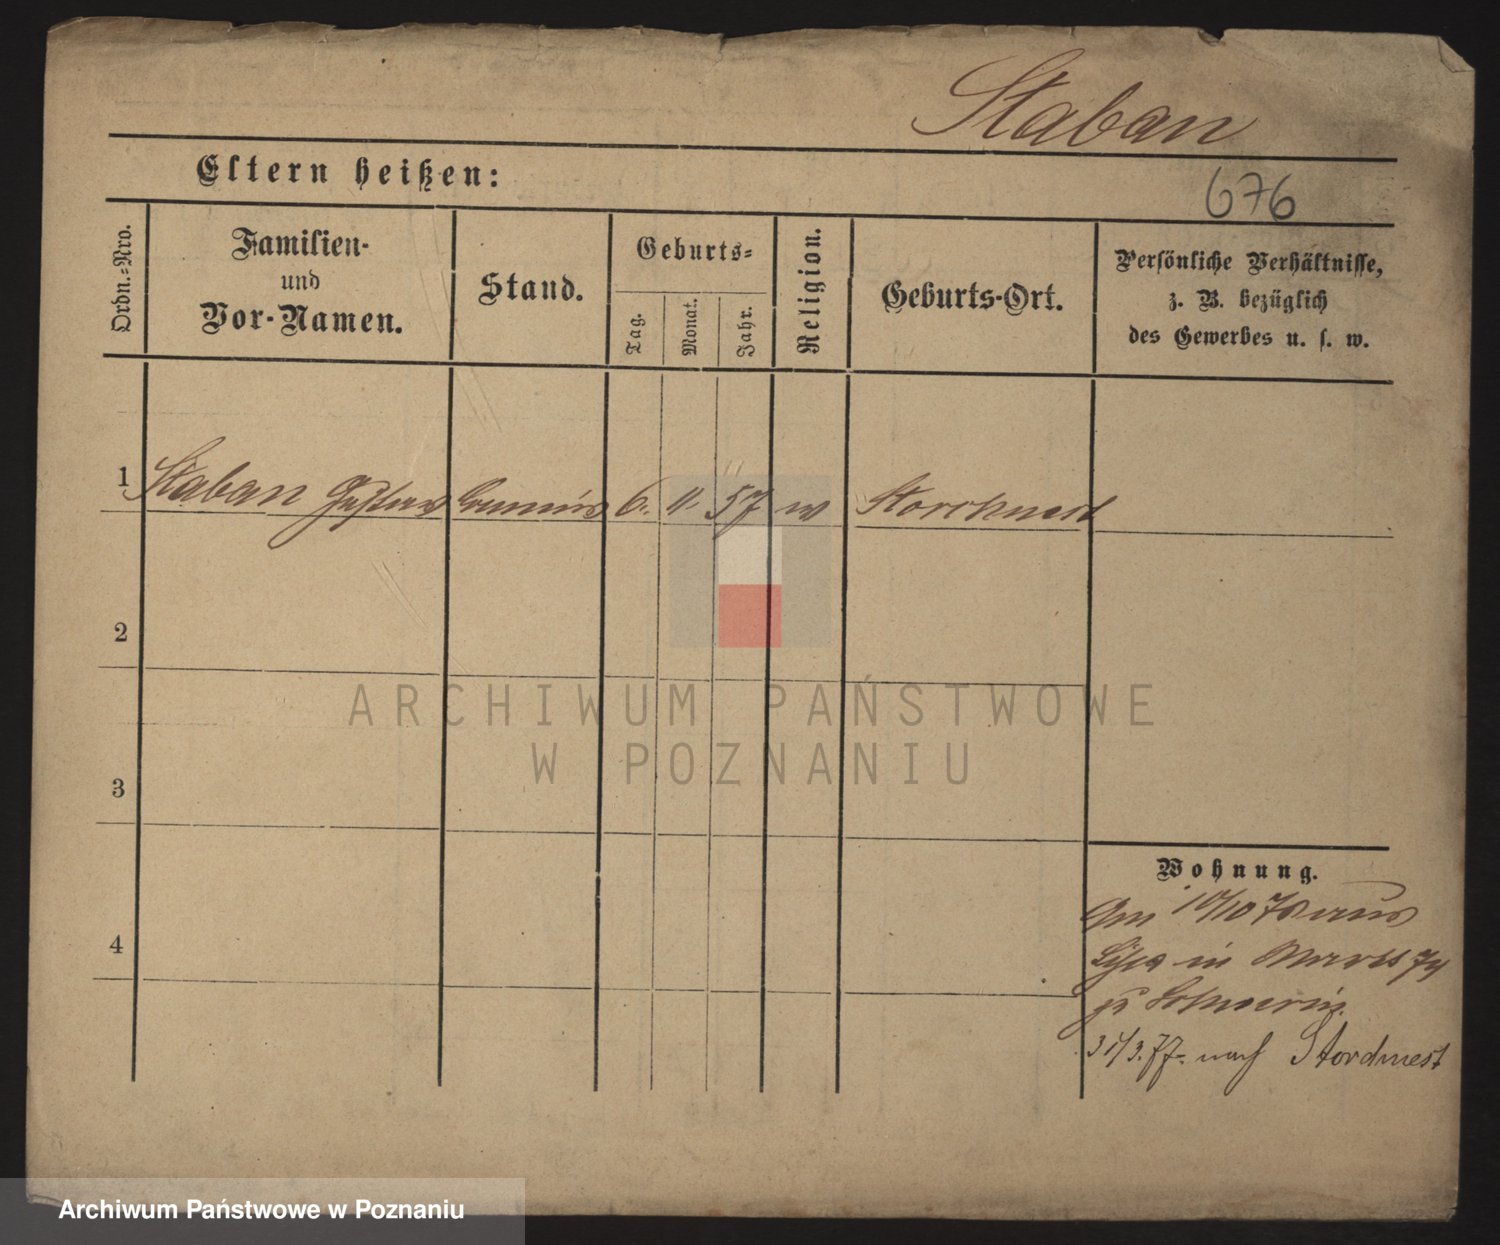 Staban
Eltern heißen:
676
Ordn.-Nro.
Familien-
und
Vor-Namen.
Stand.
Geburts-
Tag.
Monat.
Jahr.
Religion.
Geburts-Ort.
Persönliche Verhältnisse,
z. B. bezüglich
des Gewerbes u. s. w.
1 Staban Gustav Commis 6. 11. 57 Storchnest
2
3
4
Wohnung.
Am 10/10 76 aus
in
zu
31/3. 77. nach Storchnest
ARCHIWUM PAŃSTWOWE
W POZNANIU
Archiwum Państwowe w Poznaniu